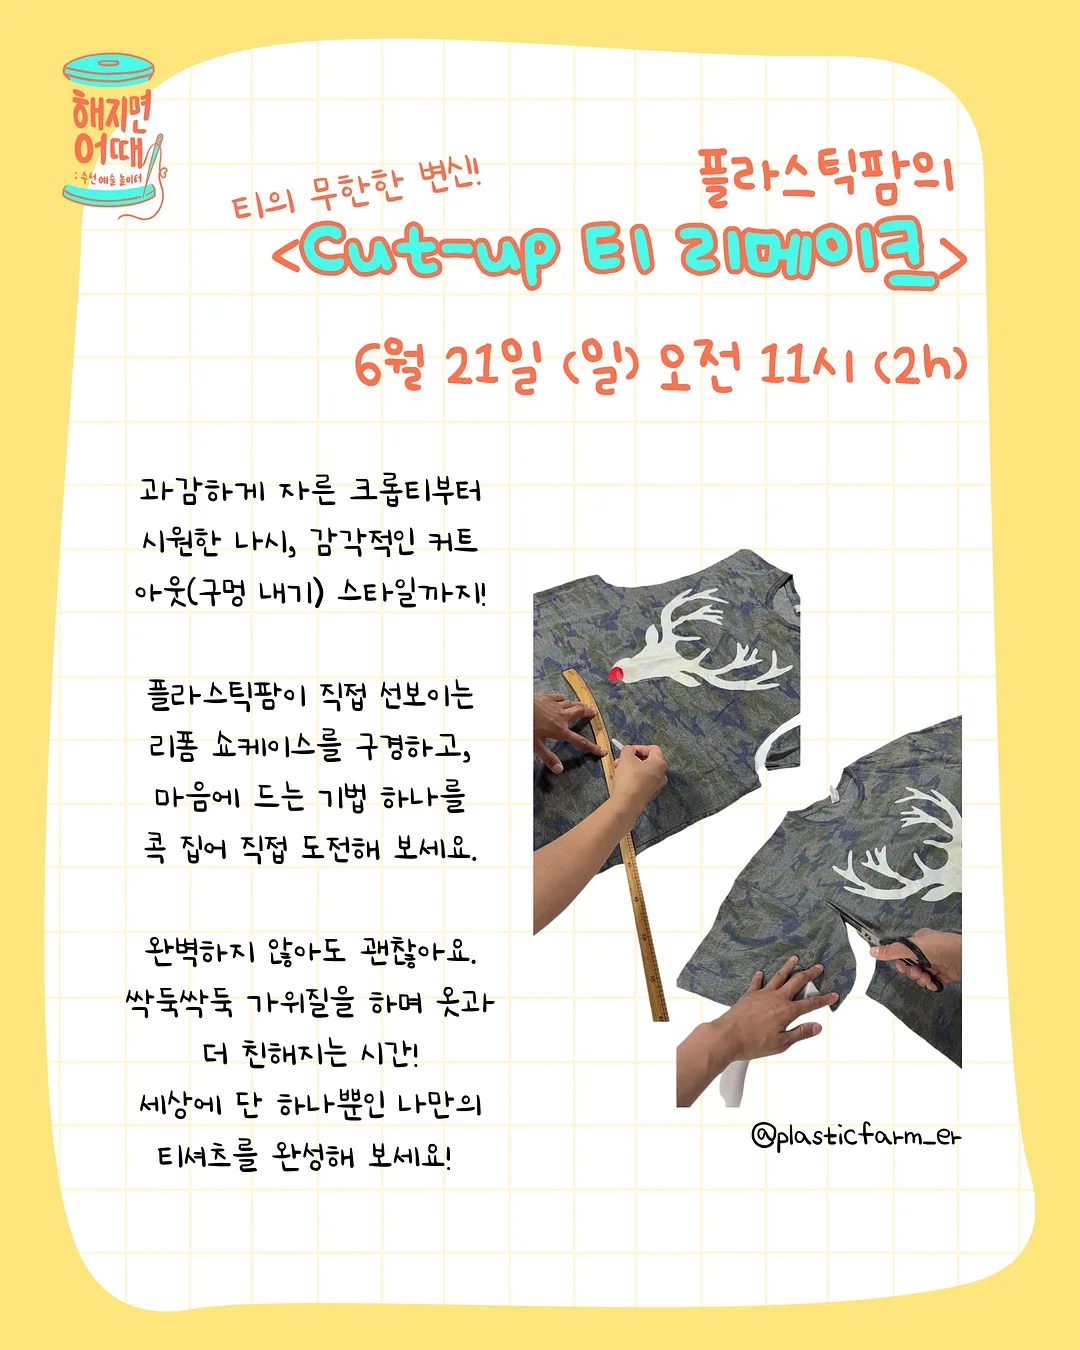 해지면
어때
: 수선 예술 놀이터
티의 무한한 변신!
플라스틱팜의
<Cut-up 티 리메이크>
6월 21일 (일) 오전 11시 (2h)
과감하게 자른 크롭티부터
시원한 나시, 감각적인 커트
아웃(구멍 내기) 스타일까지!
플라스틱팜이 직접 선보이는
리폼 쇼케이스를 구경하고,
마음에 드는 기법 하나를
콕 집어 직접 도전해 보세요.
완벽하지 않아도 괜찮아요.
싹둑싹둑 가위질을 하며 옷과
더 친해지는 시간!
세상에 단 하나뿐인 나만의
티셔츠를 완성해 보세요!
@plasticfarm_er